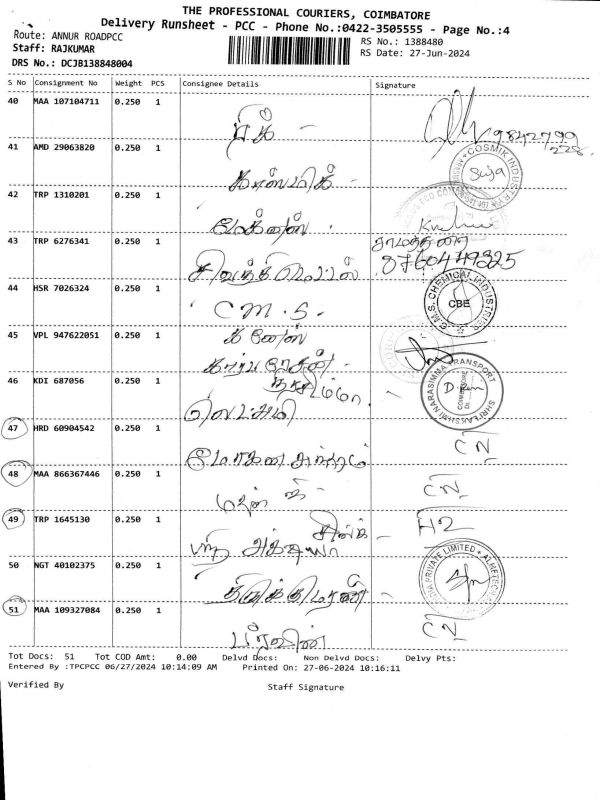 THE PROFESSIONAL COURIERS, COIMBATORE
Delivery Runsheet - PCC - Phone No.:0422-3505555 - Page No.:4
Route: ANNUR ROADPCC
RS No.: 1388480
Staff: RAJKUMAR
RS Date: 27-Jun-2024
DRS No.: DCJB138848004
S No Consignment No Weight PCS Consignee Details Signature
40 MAA 107104711 0.250 1
9842799
228
41 AMD 29063820 0.250 1
COSMIK INDUSTRY
Suja
காஸ்மிக்
42 TRP 1310201 0.250 1
மேக்னஸ்
43 TRP 6276341 0.250 1
8760449325
சிவசக்தி மெட்டல்
44 HSR 7026324 0.250 1
C.M.S. CHEMICAL INDUSTRIES
CBE
C M . S .
45 VPL 947622051 0.250 1
கணேஸ்
46 KDI 687056 0.250 1
நரசிம்மா
SHRI LAKSHMI NARASIMMA TRANSPORT
COIMBATORE
லெட்சுமி
47 HRD 60904542 0.250 1
மோகனசுந்தரம்
CN
48 MAA 866367446 0.250 1
CN
49 TRP 1645130 0.250 1
H2
50 NGT 40102375 0.250 1
PRIVATE LIMITED
51 MAA 109327084 0.250 1
CN
பிரவின்
Tot Docs: 51 Tot COD Amt: 0.00 Delvd Docs: Non Delvd Docs: Delvy Pts:
Entered By :TPCPCC 06/27/2024 10:14:09 AM Printed On: 27-06-2024 10:16:11
Verified By Staff Signature